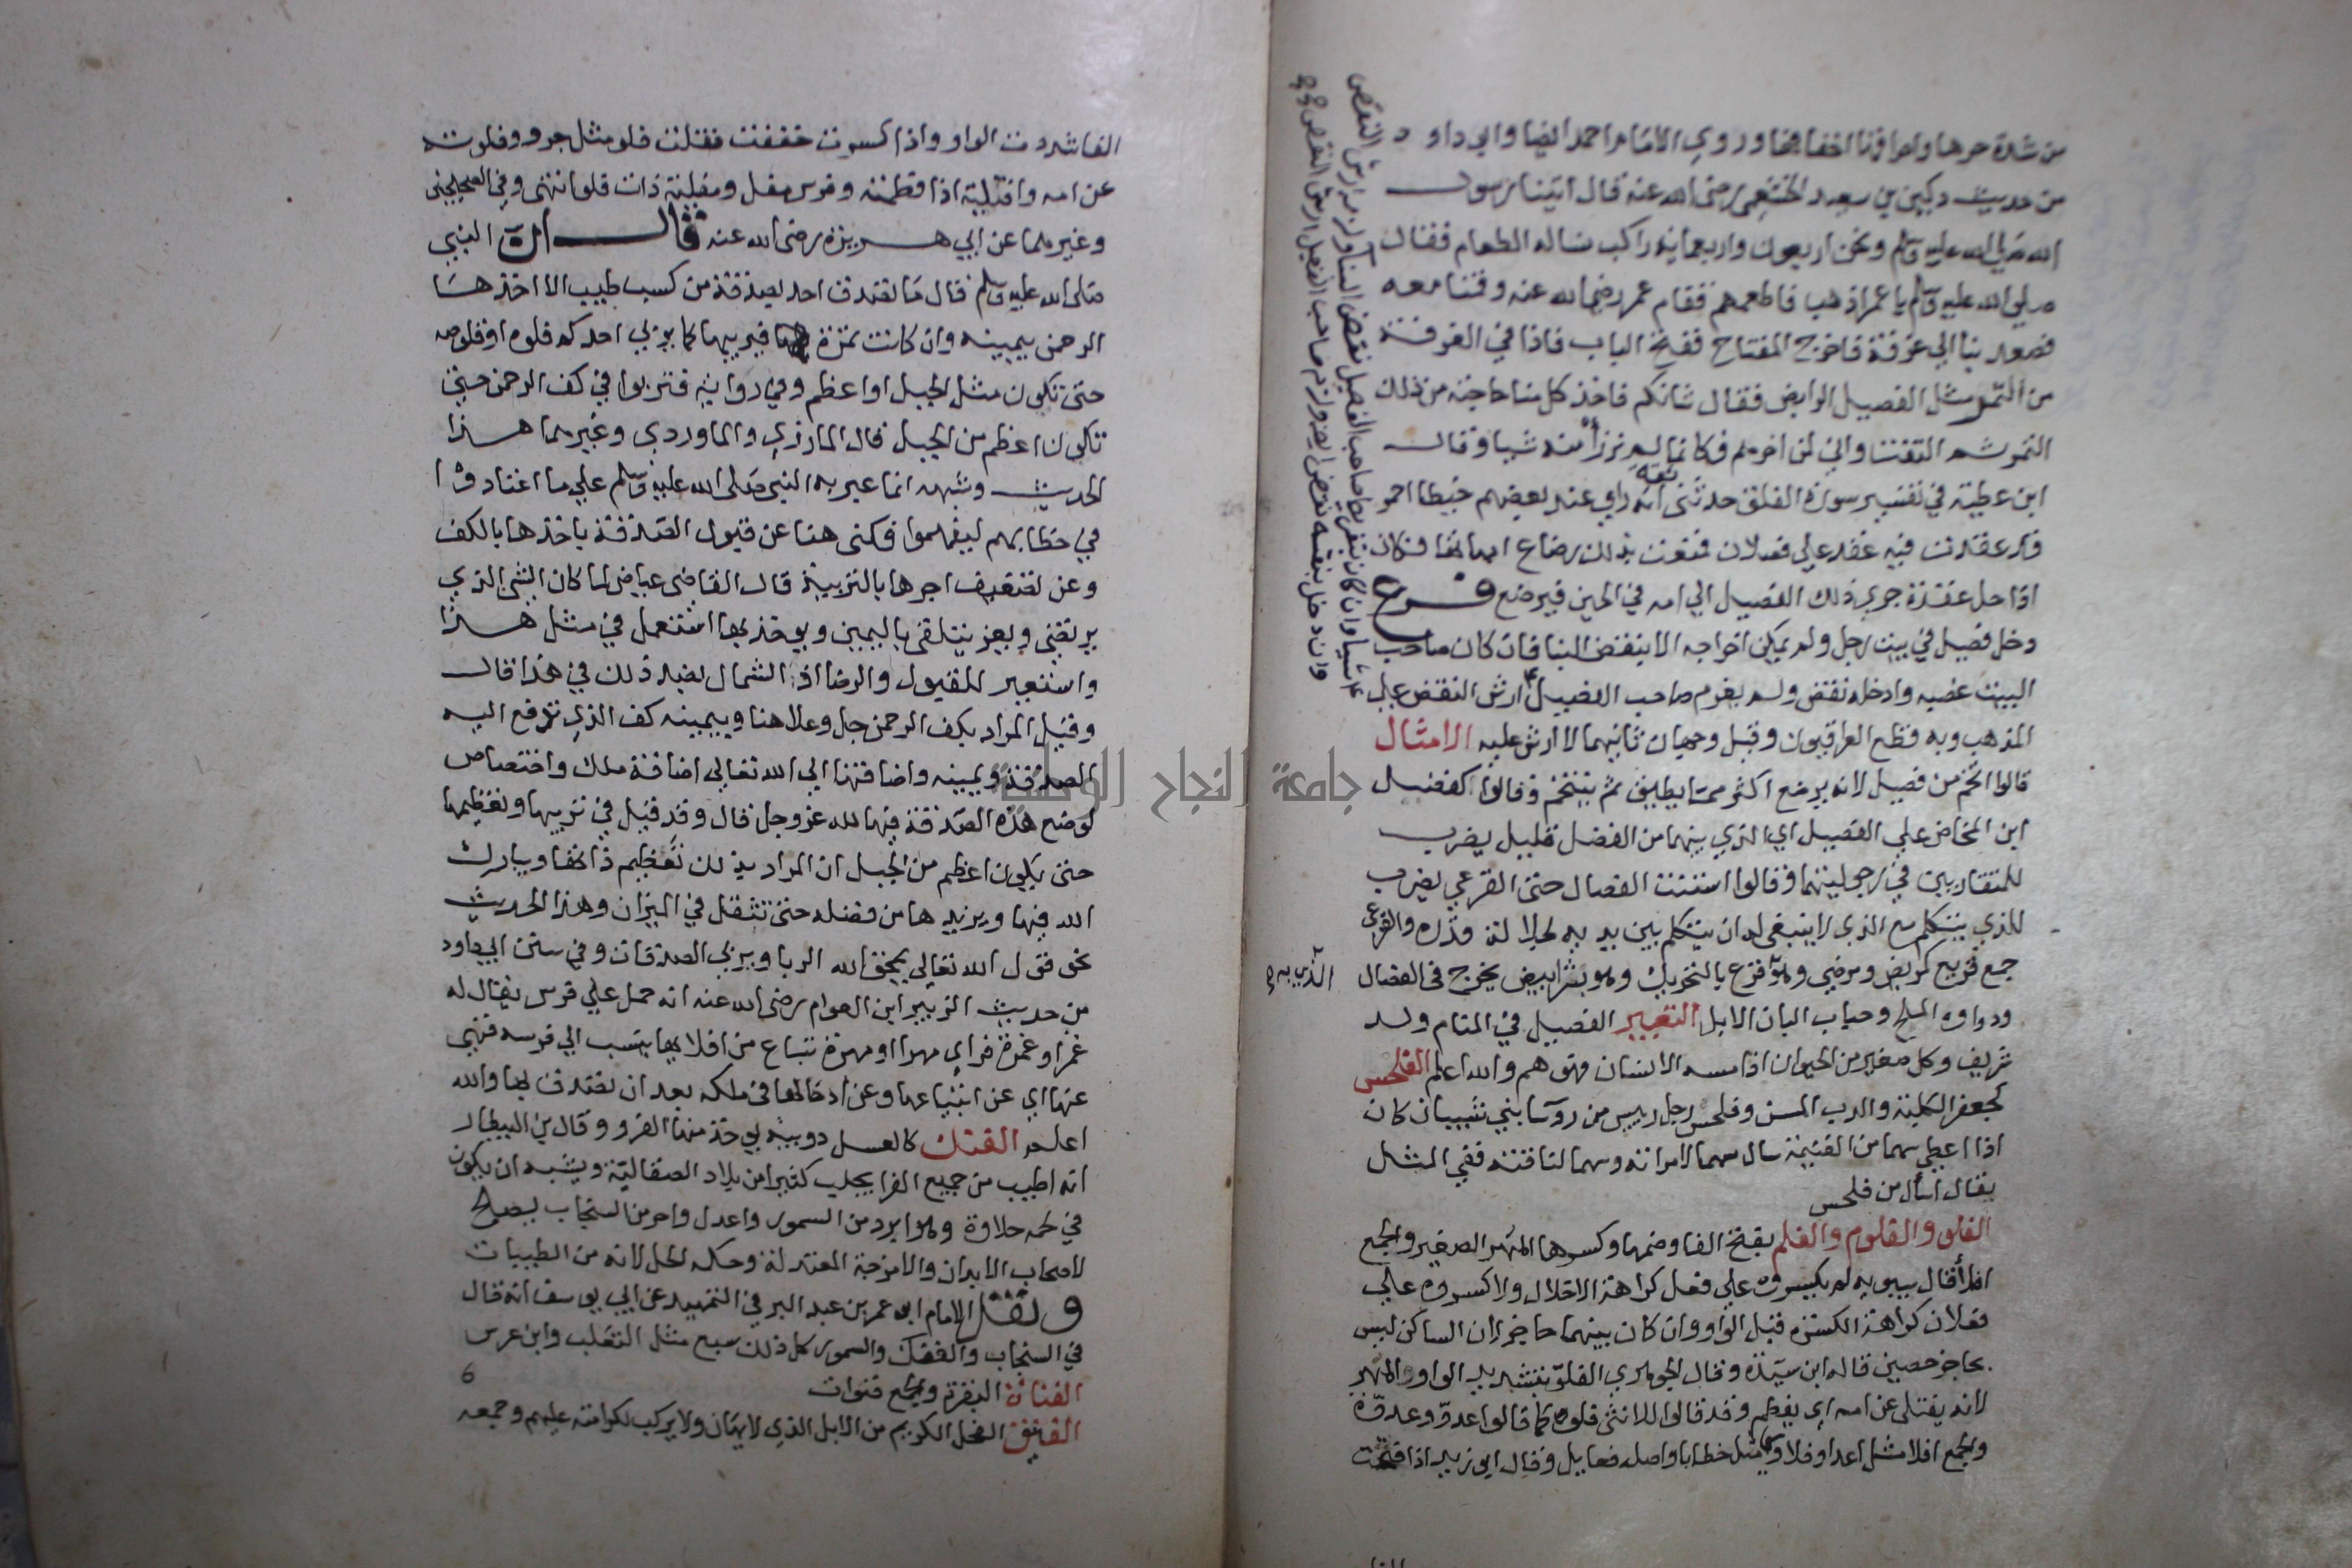 من شدة حرها ولها وقنا اخفافها وروي الامام احمد ايضا وابي داود
من حديث دكين بن سعيد الخثعمي رضي الله عنه قال اتينا رسول
الله صلي الله عليه وسلم ونحن اربعون واربعماية راكب نساله الطعام فقال
صلي الله عليه وسلم يا عمر اذهب فاطعمهم فقام عمر رضي الله عنه وقمنا معه
فصعد بنا الي غرفة فاخرج المفتاح ففتح الباب فاذا في الغرفة
من التمر مثل الفصيل الرابض فقال شانكم فاخذ كل منا حاجته من ذلك
التمر ثم التفت واني لمن اخرهم فكانما لم نرزأ منه شيا وقال
ابن عطية في تفسير سورة الفلق حدثني ثقة انه راي عند بعضهم خيطا احمر
قد عقدت فيه عقد علي فصلان فمنعت بذلك رضاع امهاتها فكان
اذا حل عقدة جري ذلك الفصيل الي امه في الحين فيرضع فرع
دخل فصيل في بيت رجل ولم يمكن اخراجه الا بنقض البنا فان كان صاحب
البيت غصبه وادخله نقض ولم يغرم صاحب الفصيل ارش النقض علي
المذهب وبه قطع العراقيون وقيل وجهان ثانيهما لا ارش عليه الامثال
قالوا اتخم من فصيل لانه يرضع اكثر مما يطيق ثم يتخم وقالوا كفضل
ابن المخاض علي الفصيل اي الذي بينهما من الفضل قليل يضرب
للمتقاربين في رجوليتهما وقالوا استنت الفصال حتي القرعي يضرب
للذي يتكلم مع الذي لا ينبغي له ان يتكلم بين يديه لجلالة قدره والقرعي
جمع قريع كمريض ومرضي وهو قزع بالتحريك وهو بثر ابيض يخرج في الفصال
ودواوه الملح وحباب البان الابل التعبير الفصيل في المنام ولد
شريف وكل صغير من الحيوان اذا مسه الانسان فهو هم والله اعلم الفلحس
كجعفر الكلبة والدب المسن وفلحس رجل رييس من روسا بني شيبان كان
اذا اعطي سهما من الغنيمة سال سهما لامراته وسهما لناقته ففي المثل
يقال اسأل من فلحس
الفلو والفلوم والفلم بفتح الفا وضمها وكسرها المهر الصغير والجمع
افلا قال سيبويه لم يكسروه علي فعل كراهة الاخلال ولا كسروه علي
فعلان كراهة الكسرة قبل الواو وان كان بينهما حاجز لان الساكن ليس
بحاجز حصين قاله ابن سيدة وقال الجوهري الفلو بتشديد الواو المهر
لانه يفتلي عن امه اي يفطم وقد قالوا للانثي فلوة كما قالوا عدو وعدوة
والجمع افلا مثل اعدا وفلاوي مثل خطايا واصله فعايل وقال ابو زيد اذا فتحت
الفا شددت الواو واذا كسرت خففت فقلت فلو مثل جرو وفلوته
عن امه وافتليته اذا فطمته وفرس مفل ومفلية ذات فلو انتهي وفي الصحيحين
وغيرهما عن ابي هريرة رضي الله عنه قال ان النبي
صلي الله عليه وسلم قال ما تصدق احد بصدقة من كسب طيب الا اخذها
الرحمن بيمينه وان كانت تمرة فيربيها كما يربي احدكم فلوه او فلوصه
حتي تكون مثل الجبل او اعظم وفي رواية فتربوا في كف الرحمن حتي
تكون اعظم من الجبل قال المازري والماوردي وغيرهما هذا
الحديث وشبهه انما عبر به النبي صلي الله عليه وسلم علي ما اعتادوا
في خطابهم ليفهموا فكني هنا عن قبول الصدقة باخذها بالكف
وعن تضعيف اجرها بالتربية قال القاضي عياض لما كان الشي الذي
يرتضي ويعز يتلقي باليمين ويوخذ بها استعمل في مثل هذا
واستعير للقبول والرضا اذ الشمال بضد ذلك في هذا قال
وقيل المراد بكف الرحمن جل وعلا هنا وبيمينه كف الذي تدفع اليه
الصدقة ويمينه واضافتها الي الله تعالي اضافة ملك واختصاص
لوضع هذه الصدقة فيها لله عز وجل قال وقد قيل في تربيتها وتعظيمها
حتي يكون اعظم من الجبل ان المراد بذلك تعظيم ذاتها ويبارك
الله فيها ويزيدها من فضله حتي تثقل في الميزان وهذا الحديث
نحو قول الله تعالي يمحق الله الربا ويربي الصدقات وفي سنن ابي داود
من حديث الزبير ابن العوام رضي الله عنه انه حمل علي فرس يقال له
غمر او غمرة فراي مهرا او مهرة تباع من افلايها ينسب الي فرسه فنهي
عنها اي عن ابتياعها وعن ادخالها في ملكه بعد ان تصدق بها والله
اعلم الفنك كالعسل دويبة يوخذ منها الفرو وقال بن البيطار
انه اطيب من جميع الفرا يجلب كثيرا من بلاد الصقالبة ويشبه ان يكون
في لحمه حلاوة وهو ابرد من السمور واعدل واحر من السنجاب يصلح
لاصحاب الابدان والامزجة المعتدلة وحكمه الحل لانه من الطيبات
ونقل الامام ابو عمر بن عبد البر في التمهيد عن ابي يوسف انه قال
في السنجاب والفنك والسمور كل ذلك سبع مثل الثعلب وابن عرس
الفناة البقرة والجمع فنوات
الفنيق الفحل الكريم من الابل الذي لا يهان ولا يركب لكرامته عليهم وجمعه
جامعة النجاح الوطنية